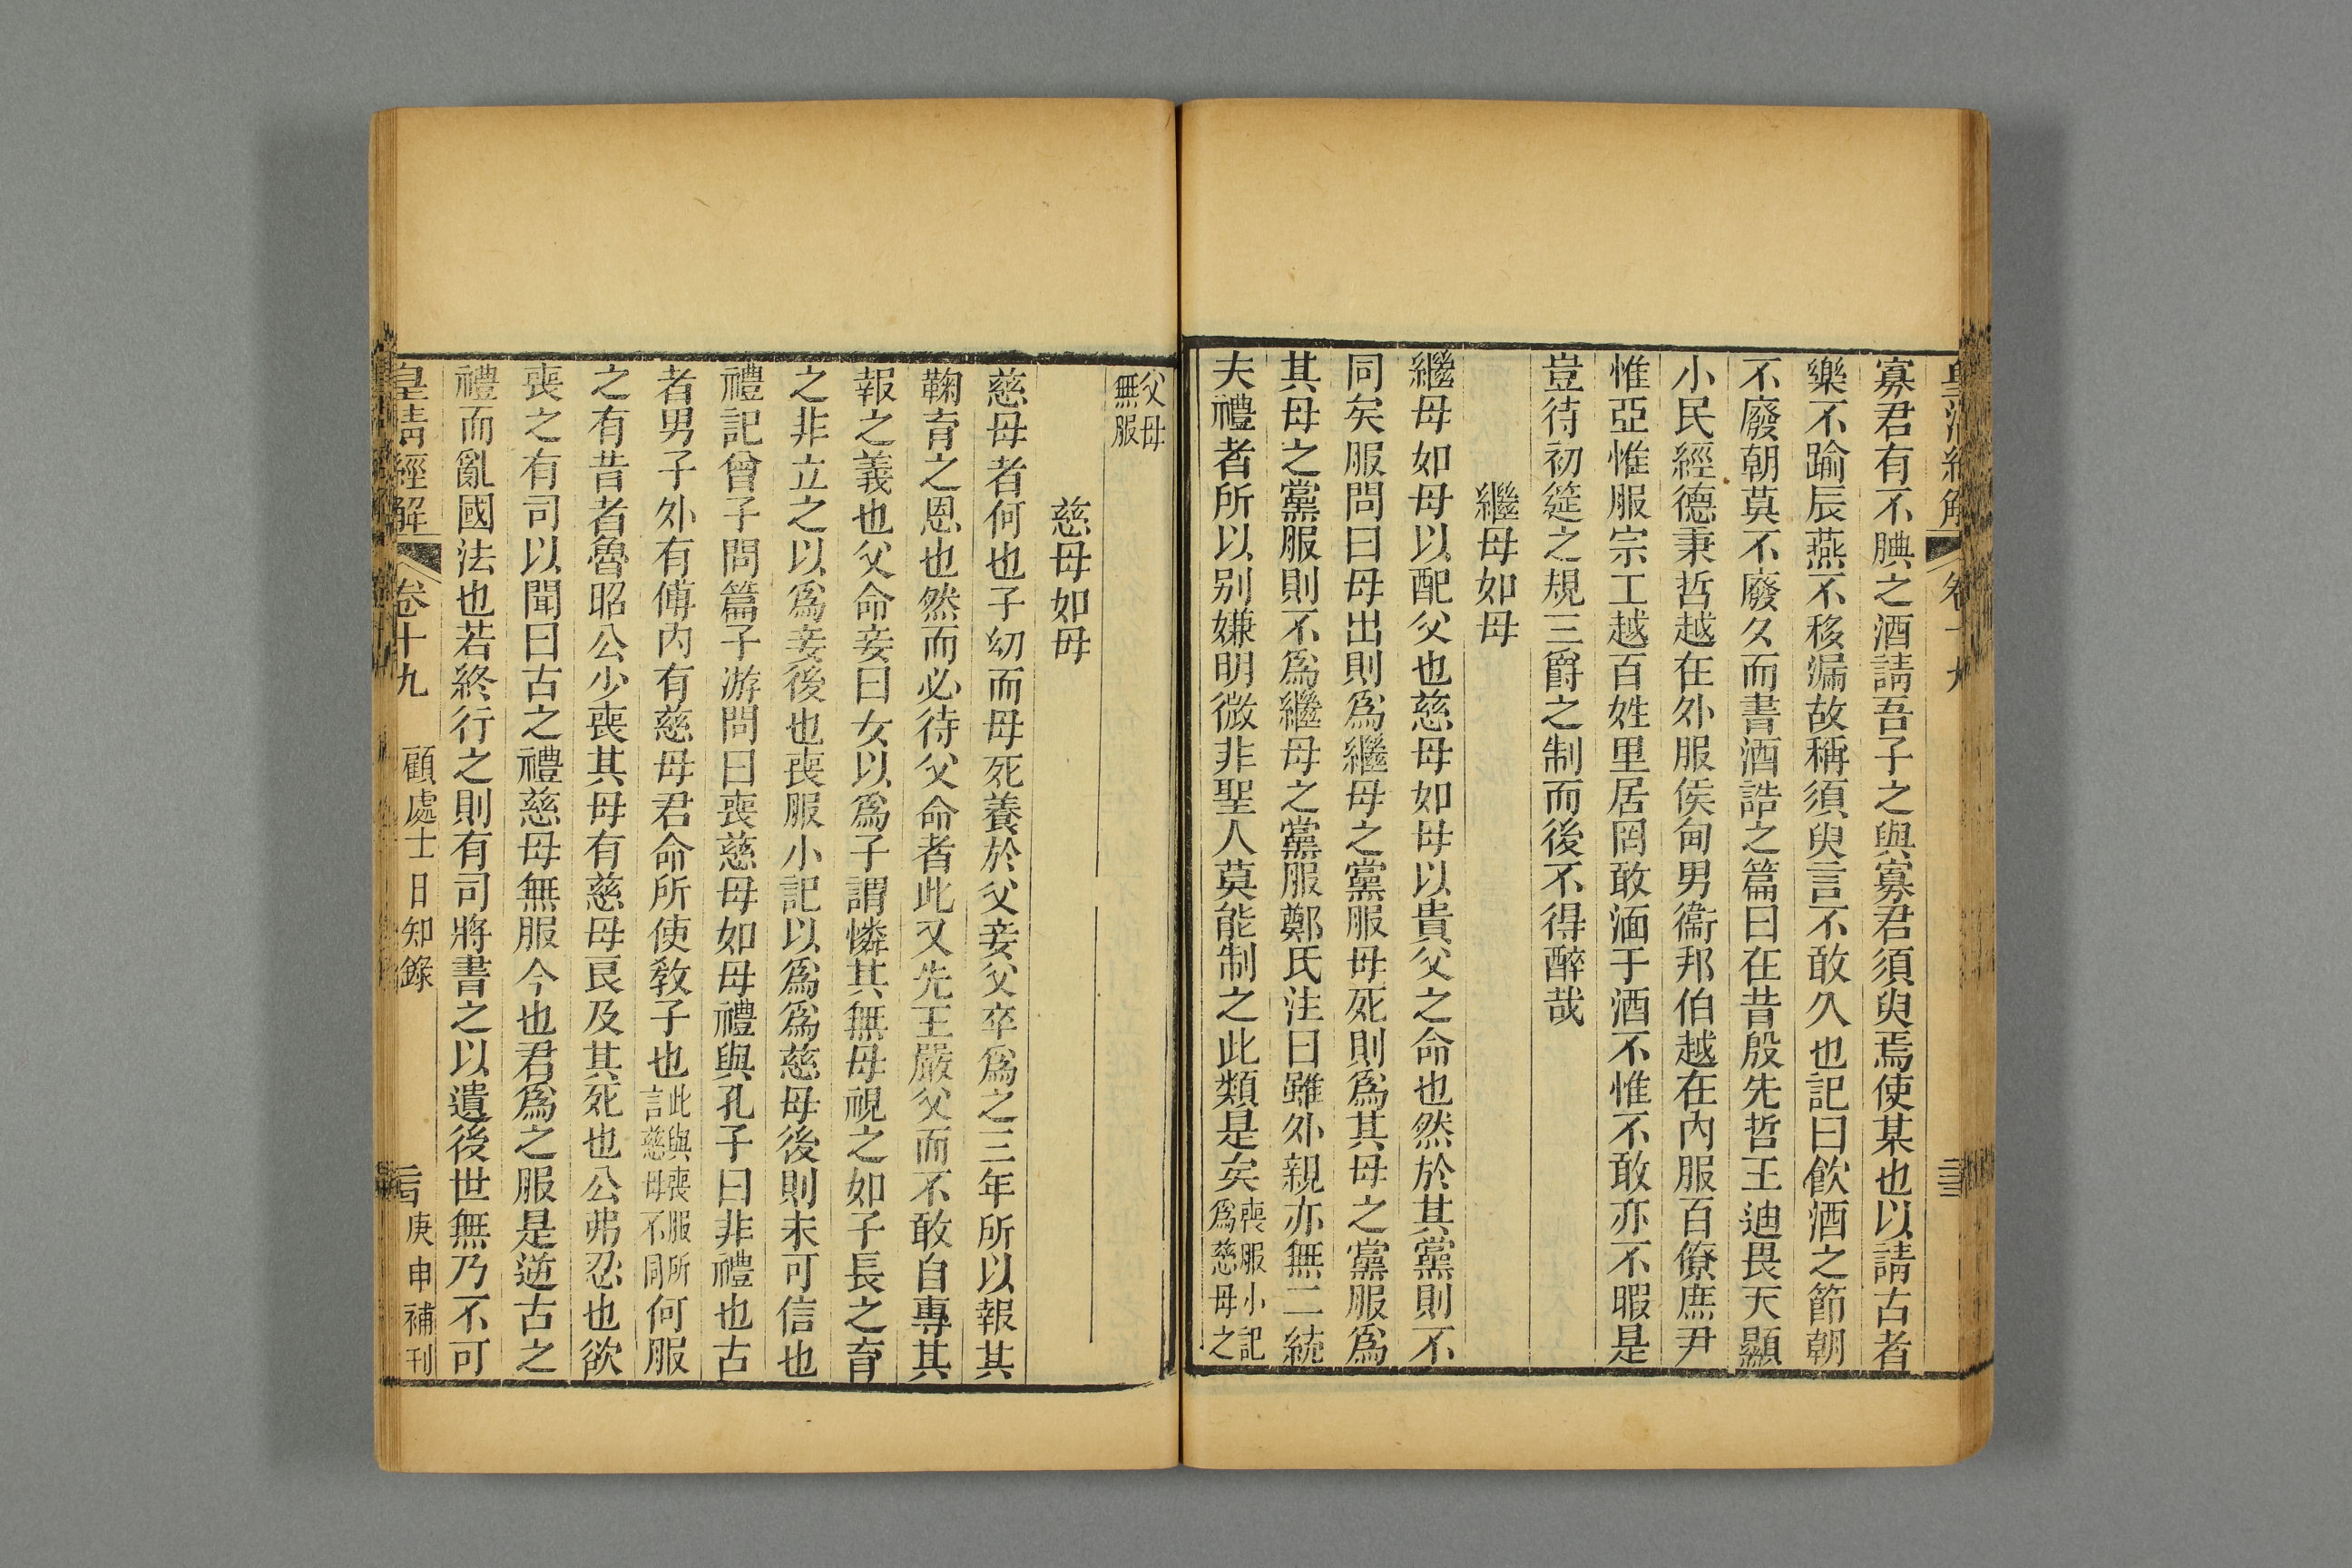 皇清經解 卷十九
寡君有不腆之酒請吾子之與寡君須臾焉使某也以請古者
樂不踰辰燕不移漏故稱須臾言不敢久也記曰飲酒之節朝
不廢朝莫不廢夕而書酒誥之篇曰在昔殷先哲王迪畏天顯
小民經德秉哲越在外服侯甸男衞邦伯越在內服百僚庶尹
惟亞惟服宗工越百姓里居罔敢湎于酒不惟不敢亦不暇是
豈待初筵之規三爵之制而後不得醉哉
繼母如母
繼母如母以配父也慈母如母以貴父之命也然於其黨則不
同矣服問曰母出則爲繼母之黨服母死則爲其母之黨服爲
其母之黨服則不爲繼母之黨服鄭氏注曰雖外親亦無二統
夫禮者所以别嫌明微非聖人莫能制之此類是矣喪服小記爲慈母之
父母無服
慈母如母
慈母者何也子幼而母死養於父妾父卒爲之三年所以報其
鞠育之恩也然而必待父命者此又先王嚴父而不敢自專其
報之義也父命妾曰女以爲子謂憐其無母視之如子長之育
之非立之以爲妾後也喪服小記以爲爲慈母後則未可信也
禮記曾子問篇子游問曰喪慈母如母禮與孔子曰非禮也古
者男子外有傅內有慈母君命所使敎子也此與喪服所言慈母不同何服
之有昔者魯昭公少喪其母有慈母良及其死也公弗忍也欲
喪之有司以聞曰古之禮慈母無服今也君爲之服是逆古之
禮而亂國法也若終行之則有司將書之以遺後世無乃不可
皇清經解 卷十九 顧處士日知錄 庚申補刊